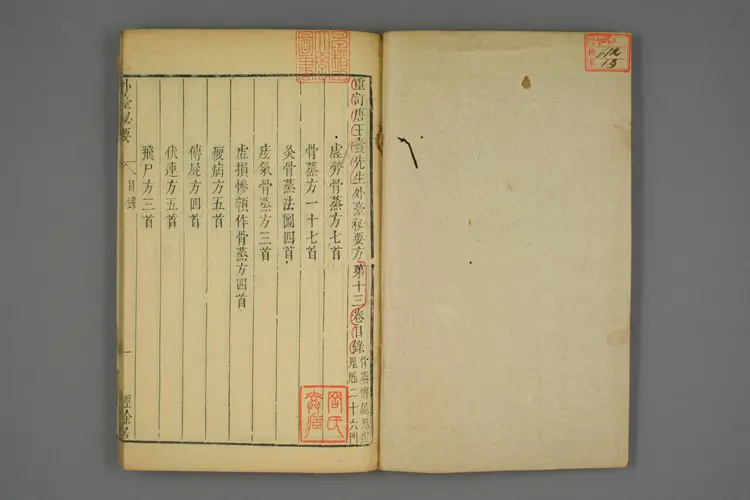 重訂唐王燾先生外臺秘要方第十三卷目錄
骨蒸傳屍鬼疰
鬼魅二十六門
虛勞骨蒸方七首
骨蒸方一十七首
灸骨蒸法圖四首
痃氣骨蒸方三首
虛損慘顇作骨蒸方四首
瘦病方五首
傳屍方四首
伏連方五首
飛尸方三首
外臺秘要
目錄
一
經餘居
13